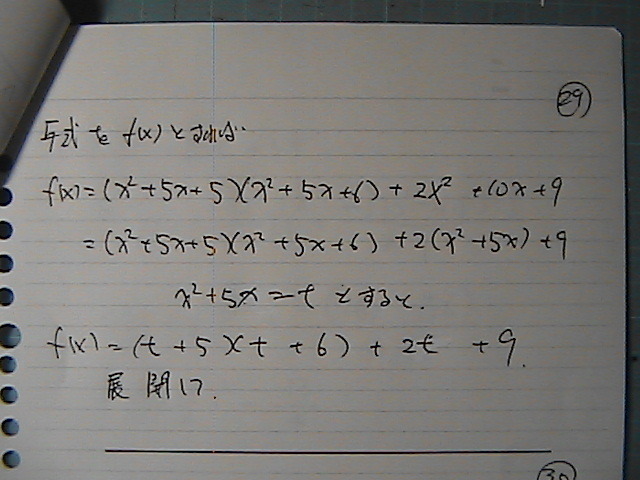 ㉙
与式を f(x) とすれば
f(x) = (x² + 5x + 5)(x² + 5x + 6) + 2x² + 10x + 9
= (x² + 5x + 5)(x² + 5x + 6) + 2(x² + 5x) + 9
x² + 5x = t とすると、
f(x) = (t + 5)(t + 6) + 2t + 9.
展開して.
㉚